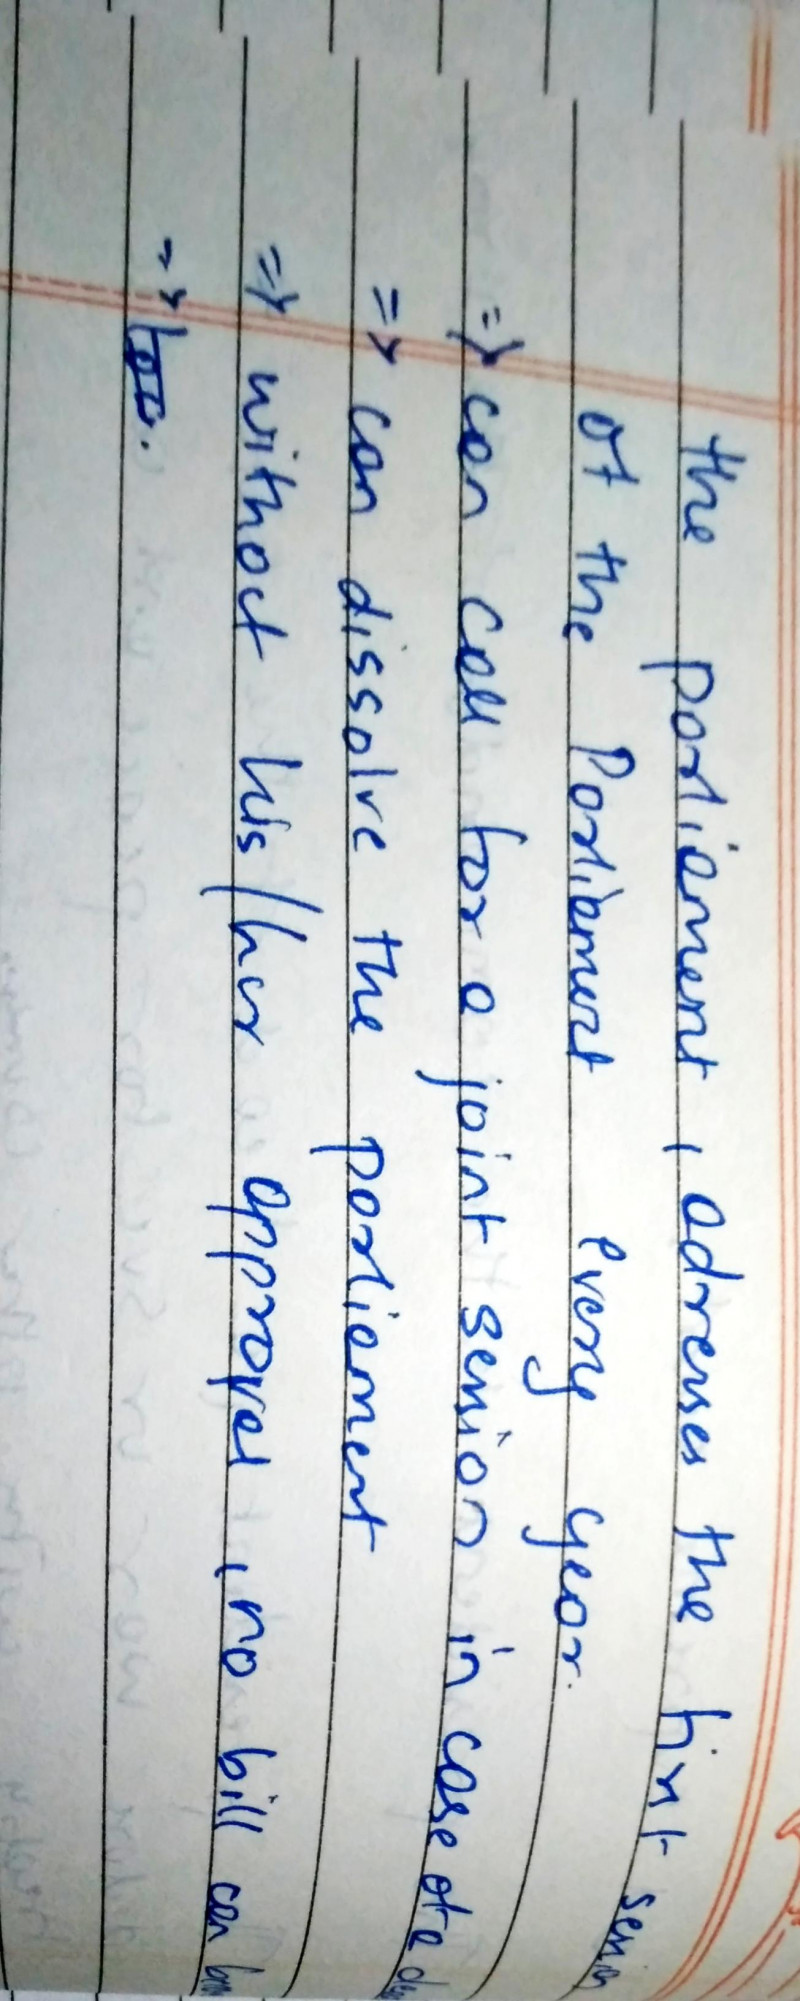 the parliament, adresses the first session
of the Parliament every year.
=> can call for a joint session in case of a
=> can dissolve the parliament
=> without his/her approval, no bill can
=>